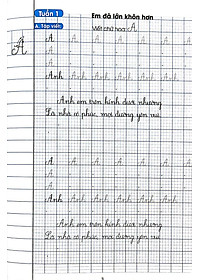 Tuần 1
Em đã lớn khôn hơn
A. Tập viết
Viết chữ hoa: A
A
A A A A A A
A A A A A A
Anh Anh Anh Anh Anh Anh
Anh em trên kính dưới nhường
Là nhà có phúc, mọi đường yên vui.
A A A A A A
A A A A A A
Anh Anh Anh Anh Anh Anh
Anh em trên kính dưới nhường
Là nhà có phúc, mọi đường yên vui.